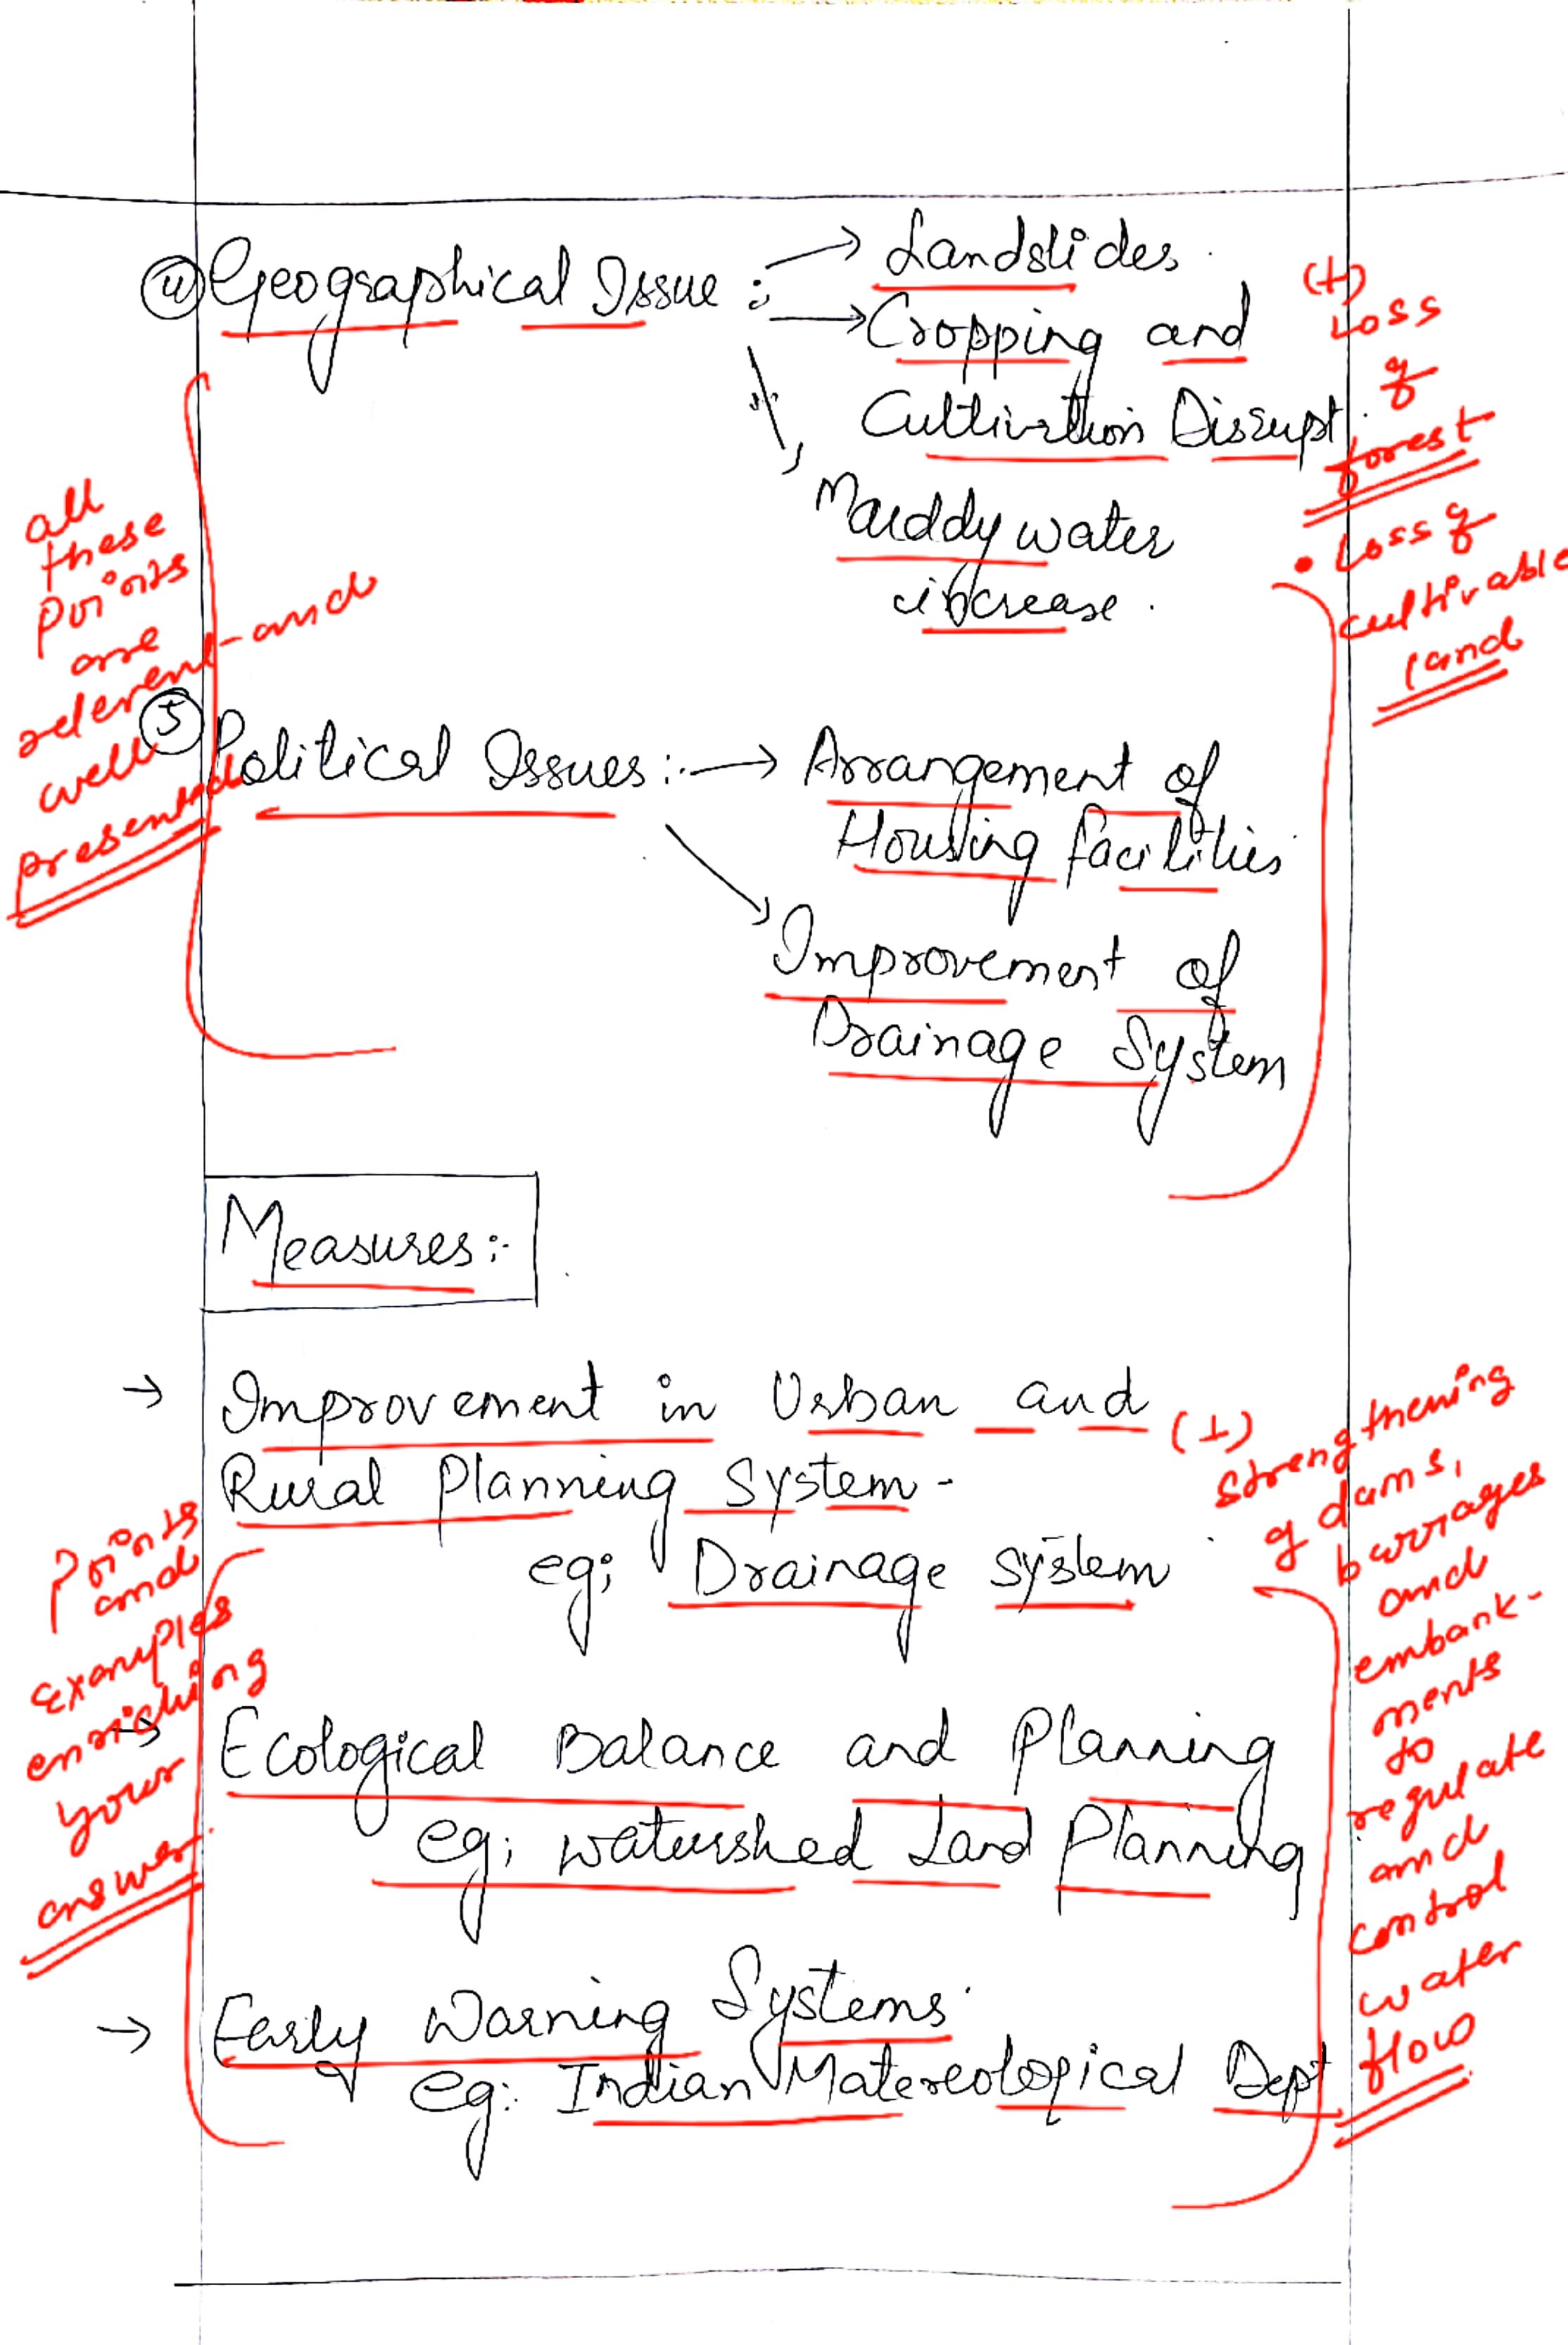 ④ Geographical Issue :
→ Landslides.
→ Cropping and
Cultivation Disrupt.
Muddy water
increase.
(+)
Loss
of
forest
• Loss of
cultivable
land
all
these
points
are
relevent and
well
presented
⑤ Political Issues :- → Arrangement of
Housing facilities
Improvement of
Drainage System
Measures :-
→ Improvement in Urban and
Rural Planning System -
eg; Drainage system
(+)
strengthening
of dams,
barrages
and
embank-
ments
to
regulate
and
control
water
flow
Points
and
Examples
enriching
your
answer.
→ Ecological Balance and Planning
eg; watershed Land Planning
→ Early Warning Systems.
eg: Indian Matereological Dept